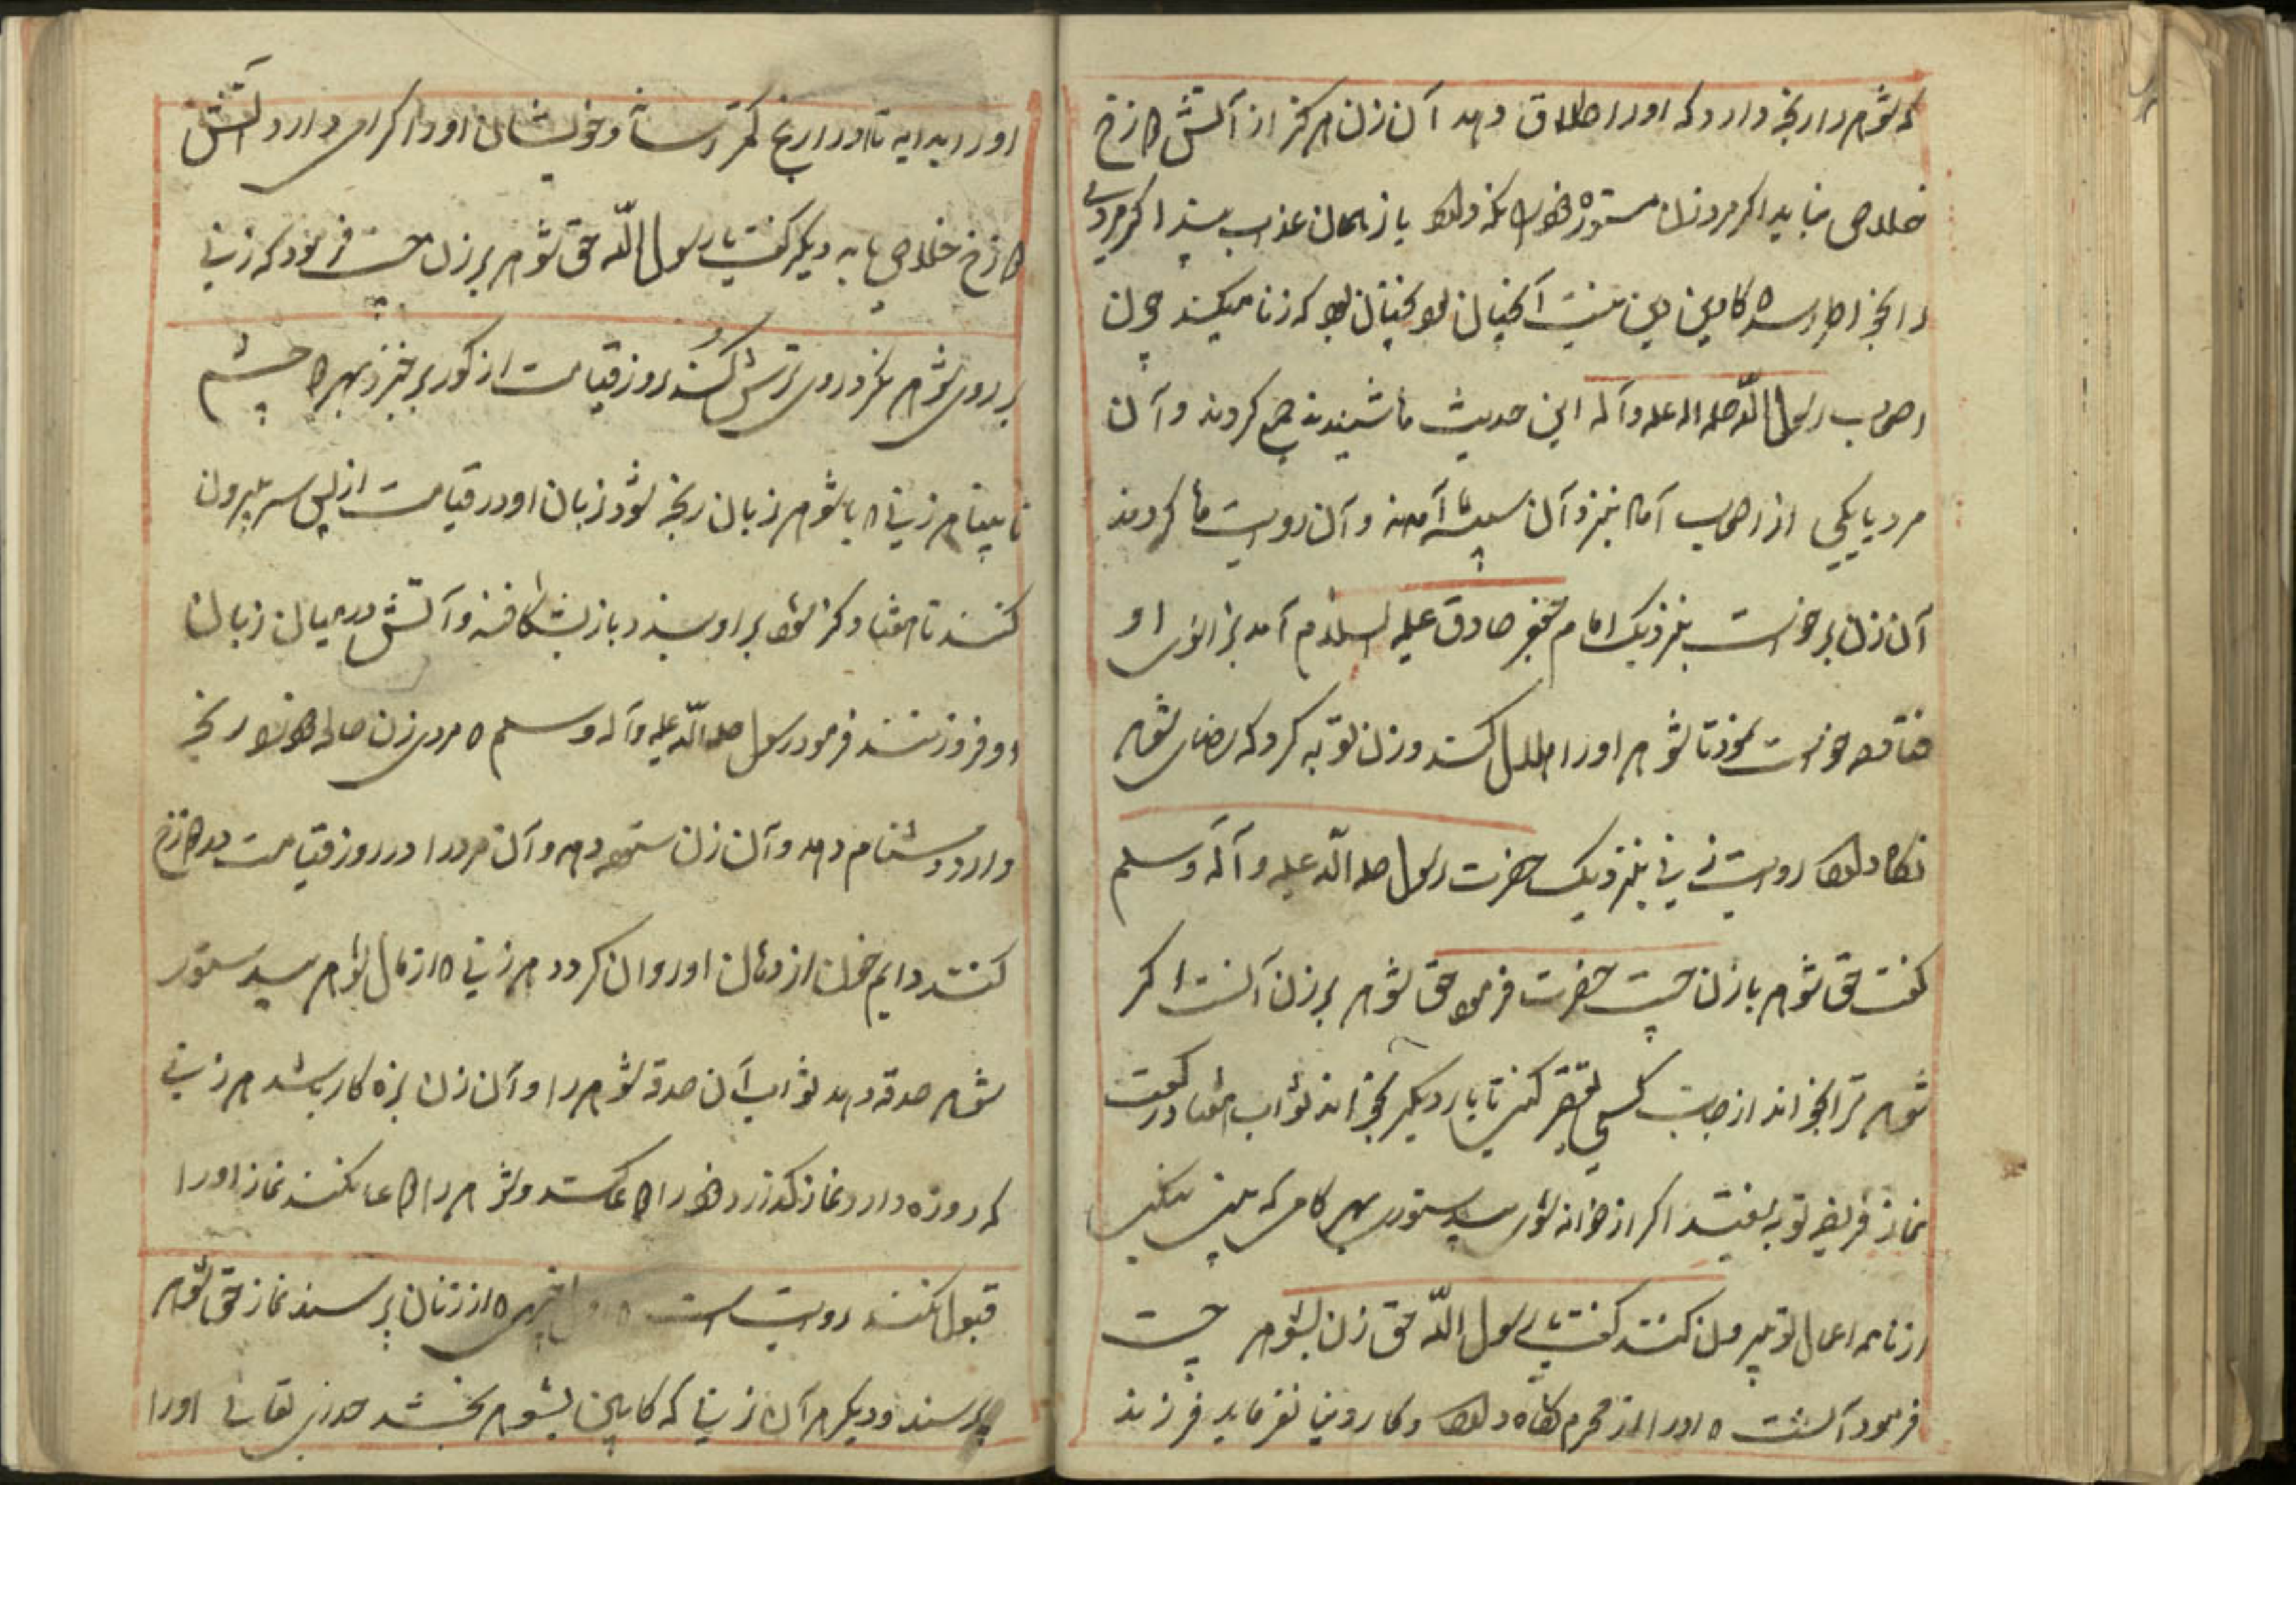 که شوهر را رنجه دارد که او را طلاق دهد آن زن هرکز از آتش دوزخ
خلاصی نیابد اکر مرد زن مستوره خود را نکه دارد با زهمان عذاب بیند اکر مردی
را رنجه دارد که کابین من نیست آنچنان بود چنان بود که زنا میکند چون
اصحاب رسول الله صلی الله علیه وآله این حدیث را شنیدند جمع کردند و آن
مرد با یکی از اصحاب آمد نیز و آن آمدند و آن روایت را کردند
آن زن برخواست بنزدیک امام جعفر صادق علیه السلام آمد بزانوی او
خواست نمود تا شوهر او را حلال کند و زن توبه کرد که رضای شوهر
نکاه دارد روایت زنی بنزدیک حضرت رسول صلی الله علیه وآله وسلم
کفت حق شوهر با زن چیست حضرت فرمود حق شوهر بر زن آنست اکر
شوهر ترا بخواند از جهت کسی تقصیر کنی تا بار دیکر بخواند ثواب هفتاد رکعت
نماز فریضه تو بیفتد اکر از خانه شوهر بیدستوری بهر کامی که
از نامه اعمال تو بیرون کنند کفت یا رسول الله حق زن بشوهر چیست
فرمود آنست که او را از محرم نکاه دارد و کار وینا نفرماید فرزند
او را بدایه تا او را رنج کمتر رساند و خویشان او را کرامی دارد از آتش
دوزخ خلاصی یابد دیکر کفت یا رسول الله حق شوهر بر زن چیست فرمود که زنی
بر روی شوهر نکرد و روی ترش کند روز قیامت از کور برخیزد بهر دو چشم
نابینا هر زنی که با شوهر زبان رنجه شود زبان او در قیامت از پس سر بیرون
کنند تا هفتاد کز شود بر او بندد باز بشکافند و آتش در میان زبان
او فروزنند فرمود رسول صلی الله علیه وآله وسلم که مردی زن صالحه خود را رنجه
دارد و دشنام دهد و آن زن ستوه دهد و آن مرد را در روز قیامت در دوزخ
کنند دایم خون از دهان او روان کردد هر زنی که از مال شوهر بیدستور
شوهر صدقه دهد ثواب آن صدقه شوهر را و آن زن بزه کار باشد هر زنی
که روزه دارد و نماز بکذارد و خود را دعا کند و شوهر را دعا نکند نماز او را
قبول نکند روایت است که اول چیزی که از زنان پرسند نماز حق شوهر
پرسند و دیکر هر آن زنی که کابین بشوهر بخشد خدای تعالی او را